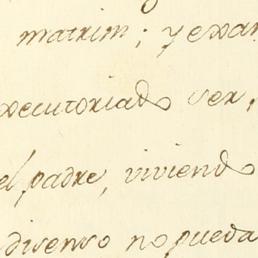 matrim; y exan
executoriado ser,
el padre, viviendo
disenso no pueda